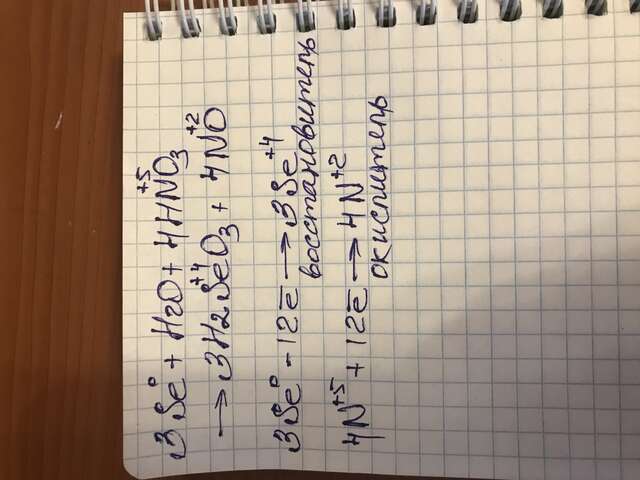 3Se⁰ + H2O + 4HN⁺⁵O3
→ 3H2Se⁺⁴O3 + 4N⁺²O
3Se⁰ - 12ē → 3Se⁺⁴
восстановитель
4N⁺⁵ + 12ē → 4N⁺²
окислитель